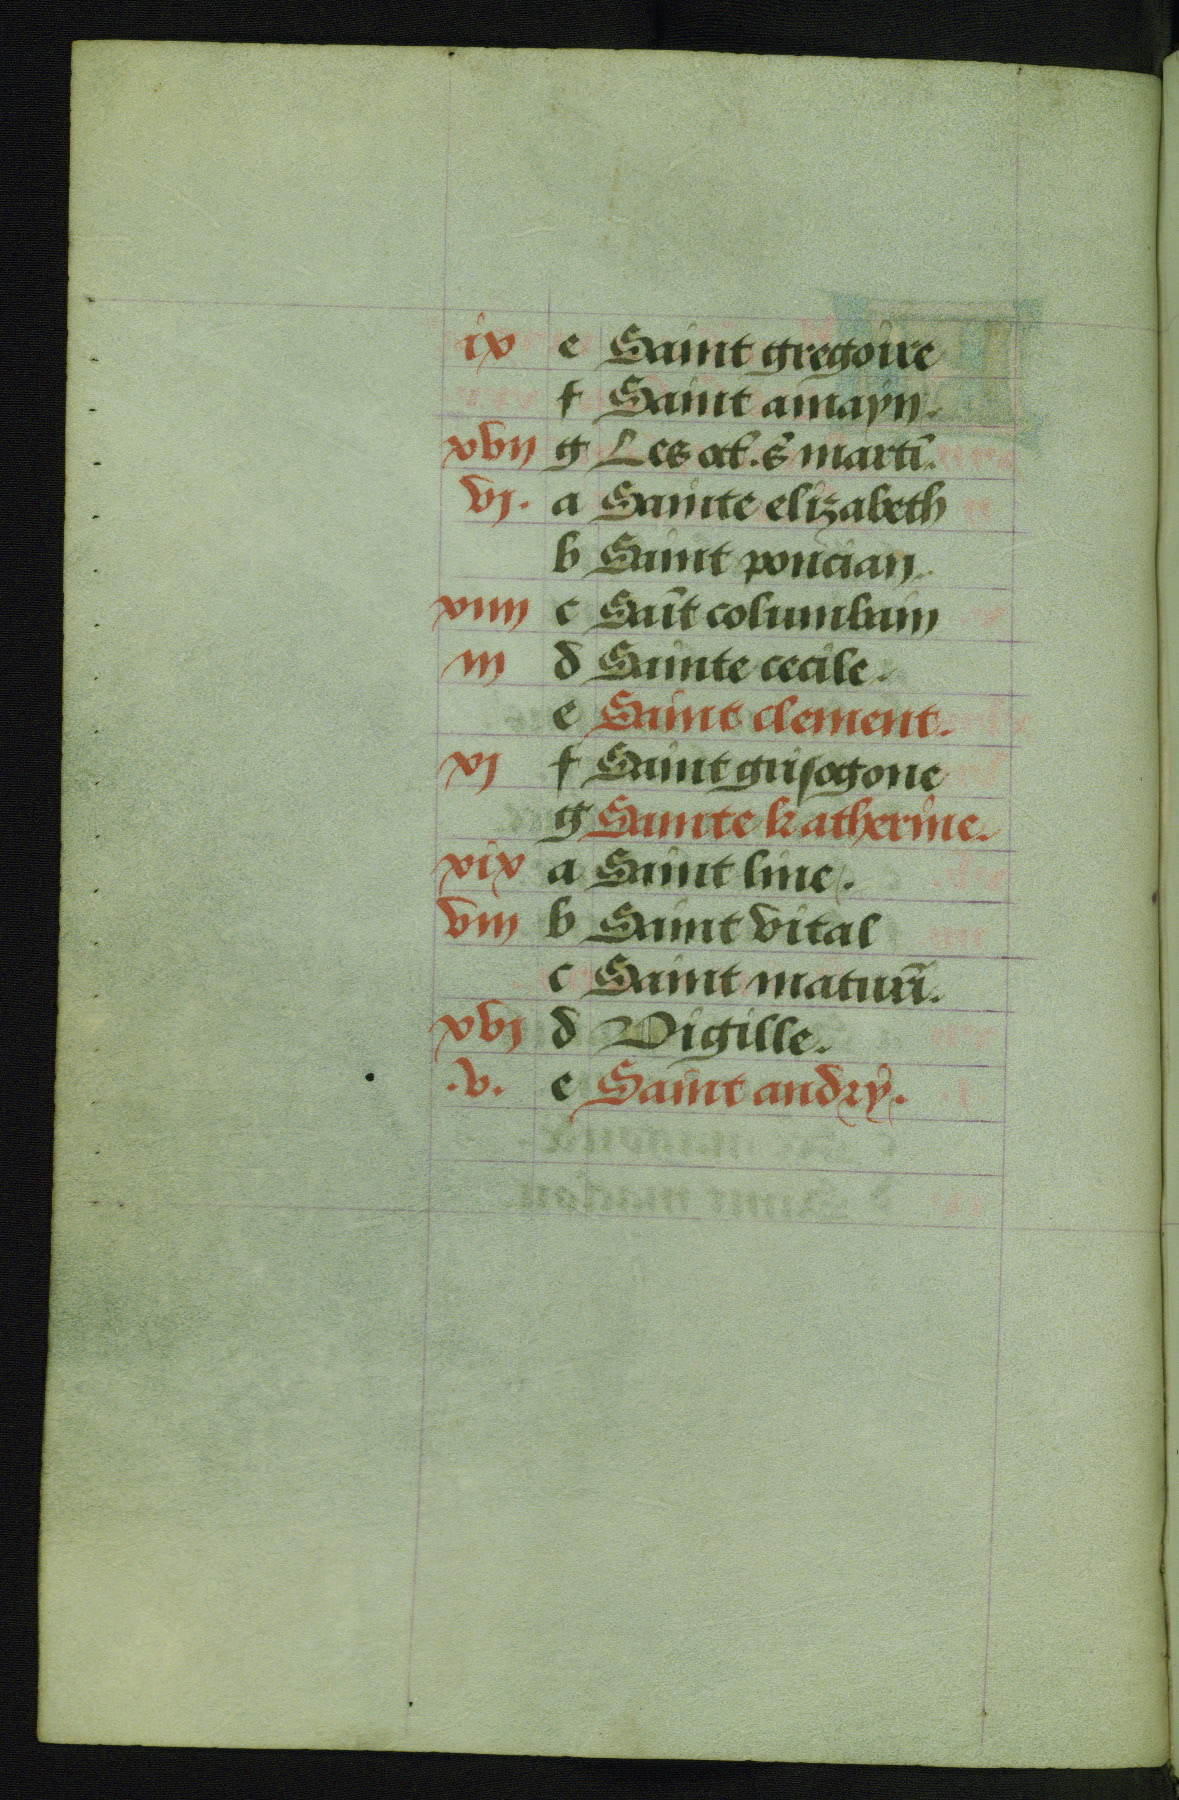 ix e Saint gregoire
f Saint amayn.
xvij g Les oct. s̃ martĩ.
vj. a Sainte elizabeth
b Saint poncian.
xiiij c Saĩt columbain
iij d Sainte cecile.
e Saint clement.
xj f Saint grisogone
g Sainte katherine.
xix a Saint line.
viij b Saint vital
c Saint maturĩ.
xvj d Vigille.
.v. e Saint andry.